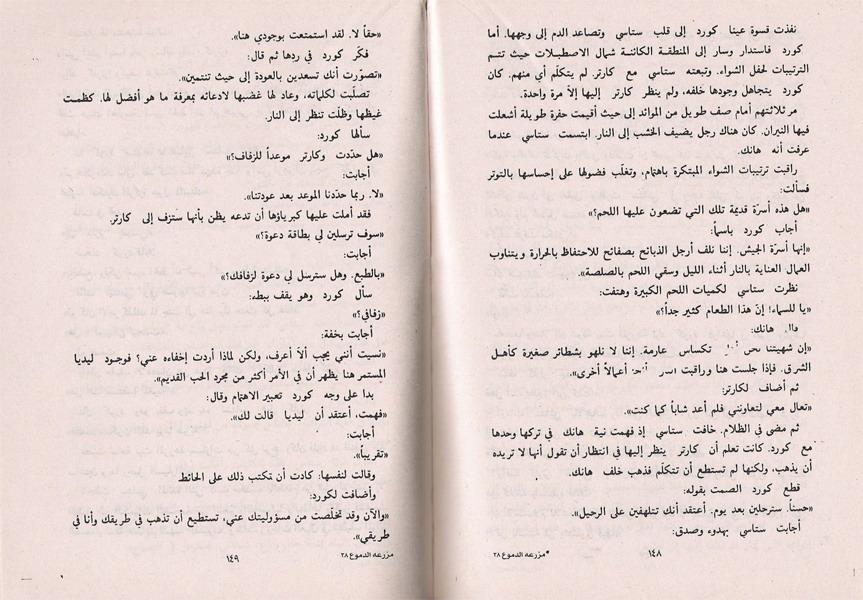 نفذت قسوة عينا كورد إلى قلب ستاسي وتصاعد الدم إلى وجهها. أما
كورد فاستدار وسار إلى المنطقة الكائنة شمال الاصطبلات حيث تتم
الترتيبات لحفل الشواء. وتبعته ستاسي مع كارتر. لم يتكلّم أي منهم. كان
كورد يتجاهل وجودها خلفه، ولم ينظر كارتر إليها إلاّ مرة واحدة.
مر ثلاثتهم أمام صف طويل من الموائد إلى حيث أقيمت حفرة طويلة أشعلت
فيها النيران. كان هناك رجل يضيف الخشب إلى النار. ابتسمت ستاسي عندما
عرفت أنه هانك.
راقبت ترتيبات الشواء المبتكرة باهتمام، وتغلّب فضولها على إحساسها بالتوتر
فسألت:
«هل هذه أسرّة قديمة تلك التي تضعون عليها اللحم؟»
أجاب كورد باسماً:
«إنها أسرّة الجيش. إننا نلف أرجل الذبائح بصفائح للاحتفاظ بالحرارة ويتناوب
العمال العناية بالنار أثناء الليل وسقي اللحم بالصلصة».
نظرت ستاسي لكميات اللحم الكبيرة وهتفت:
«يا للسماء! إنّ هذا الطعام كثير جداً؟»
هانك:
«إن شهيتنا نحن تكساس عارمة. إننا لا نلهو بشطائر صغيرة كأهل
الشرق. فإذا جلست هنا وراقبت أعمالاً أخرى».
ثم أضاف لكارتر:
«تعال معي لتعاونني فلم أعد شاباً كما كنت».
ثم مضى في الظلام. خافت ستاسي إذ فهمت نية هانك في تركها وحدها
مع كورد. كانت تعلم أن كارتر ينظر إليها في انتظار أن تقول أنها لا تريده
أن يذهب، ولكنها لم تستطع أن تتكلّم فذهب خلف هانك.
قطع كورد الصمت بقوله:
«حسناً. سترحلين بعد يوم. أعتقد أنك تتلهفين على الرحيل».
أجابت ستاسي بهدوء وصدق:
١٤٨
*مزرعة الدموع ٢٨
«حقاً لا. لقد استمتعت بوجودي هنا».
فكّر كورد في ردها ثم قال:
«تصوّرت أنك تسعدين بالعودة إلى حيث تنتمين».
تصلّبت لكلماته، وعاد لها غضبها لادعائه بمعرفة ما هو أفضل لها. كظمت
غيظها وظلّت تنظر إلى النار.
سألها كورد:
«هل حدّدت وكارتر موعداً للزفاف؟»
أجابت:
«لا. ربما حدّدنا الموعد بعد عودتنا».
فقد أملت عليها كبرياؤها أن تدعه يظن بأنها ستزف إلى كارتر.
«سوف ترسلين لي بطاقة دعوة؟»
أجابت:
«بالطبع. وهل سترسل لي دعوة لزفافك؟»
سأل كورد وهو يقف ببطء:
«زفافي؟»
أجابت بخفة:
«نسيت أنني يجب ألاّ أعرف، ولكن لماذا أردت إخفاءه عني؟ فوجود ليديا
المستمر هنا يظهر أن في الأمر أكثر من مجرد الحب القديم».
بدا على وجه كورد تعبير الاهتمام وقال:
«فهمت، أعتقد أن ليديا قالت لك».
أجابت:
«تقريباً».
وقالت لنفسها: كادت أن تكتب ذلك على الحائط
وأضافت لكورد:
«والآن وقد تخلّصت من مسؤوليتك عني، تستطيع أن تذهب في طريقك وأنا في
طريقي».
١٤٩
مزرعة الدموع ٢٨